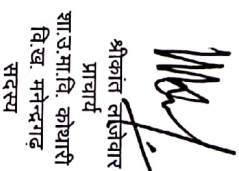 श्रीकांत लाजेवार
प्राचार्य
शा.उ.मा.वि. कोथारी
वि.ख. मनेन्द्रगढ़
सदस्य